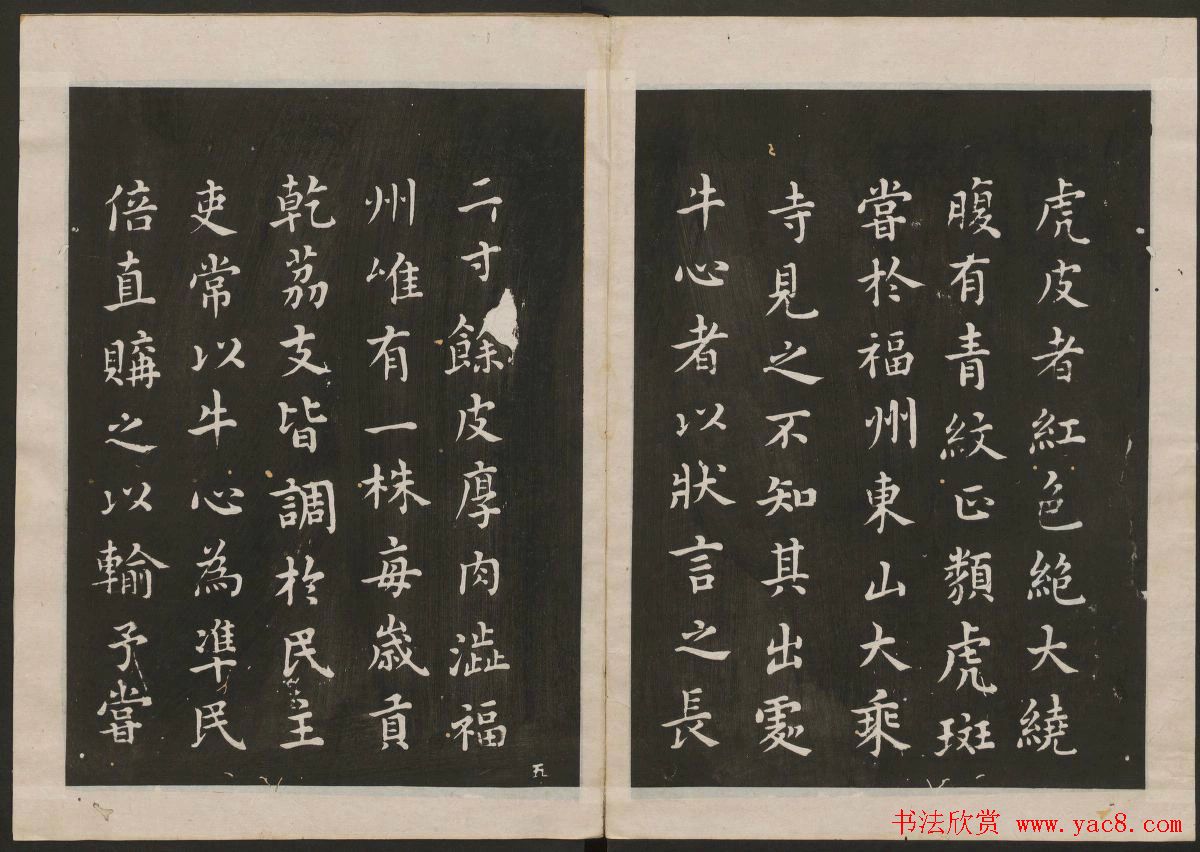 虎皮者紅色絶大繞
腹有青紋正類虎斑
嘗於福州東山大乘
寺見之不知其出處
牛心者以狀言之長
二寸餘皮厚肉澁福
州唯有一株每歲貢
乾荔支皆調於民主
吏常以牛心為準民
倍直購之以輸予嘗
五
书法欣赏 www.yac8.com